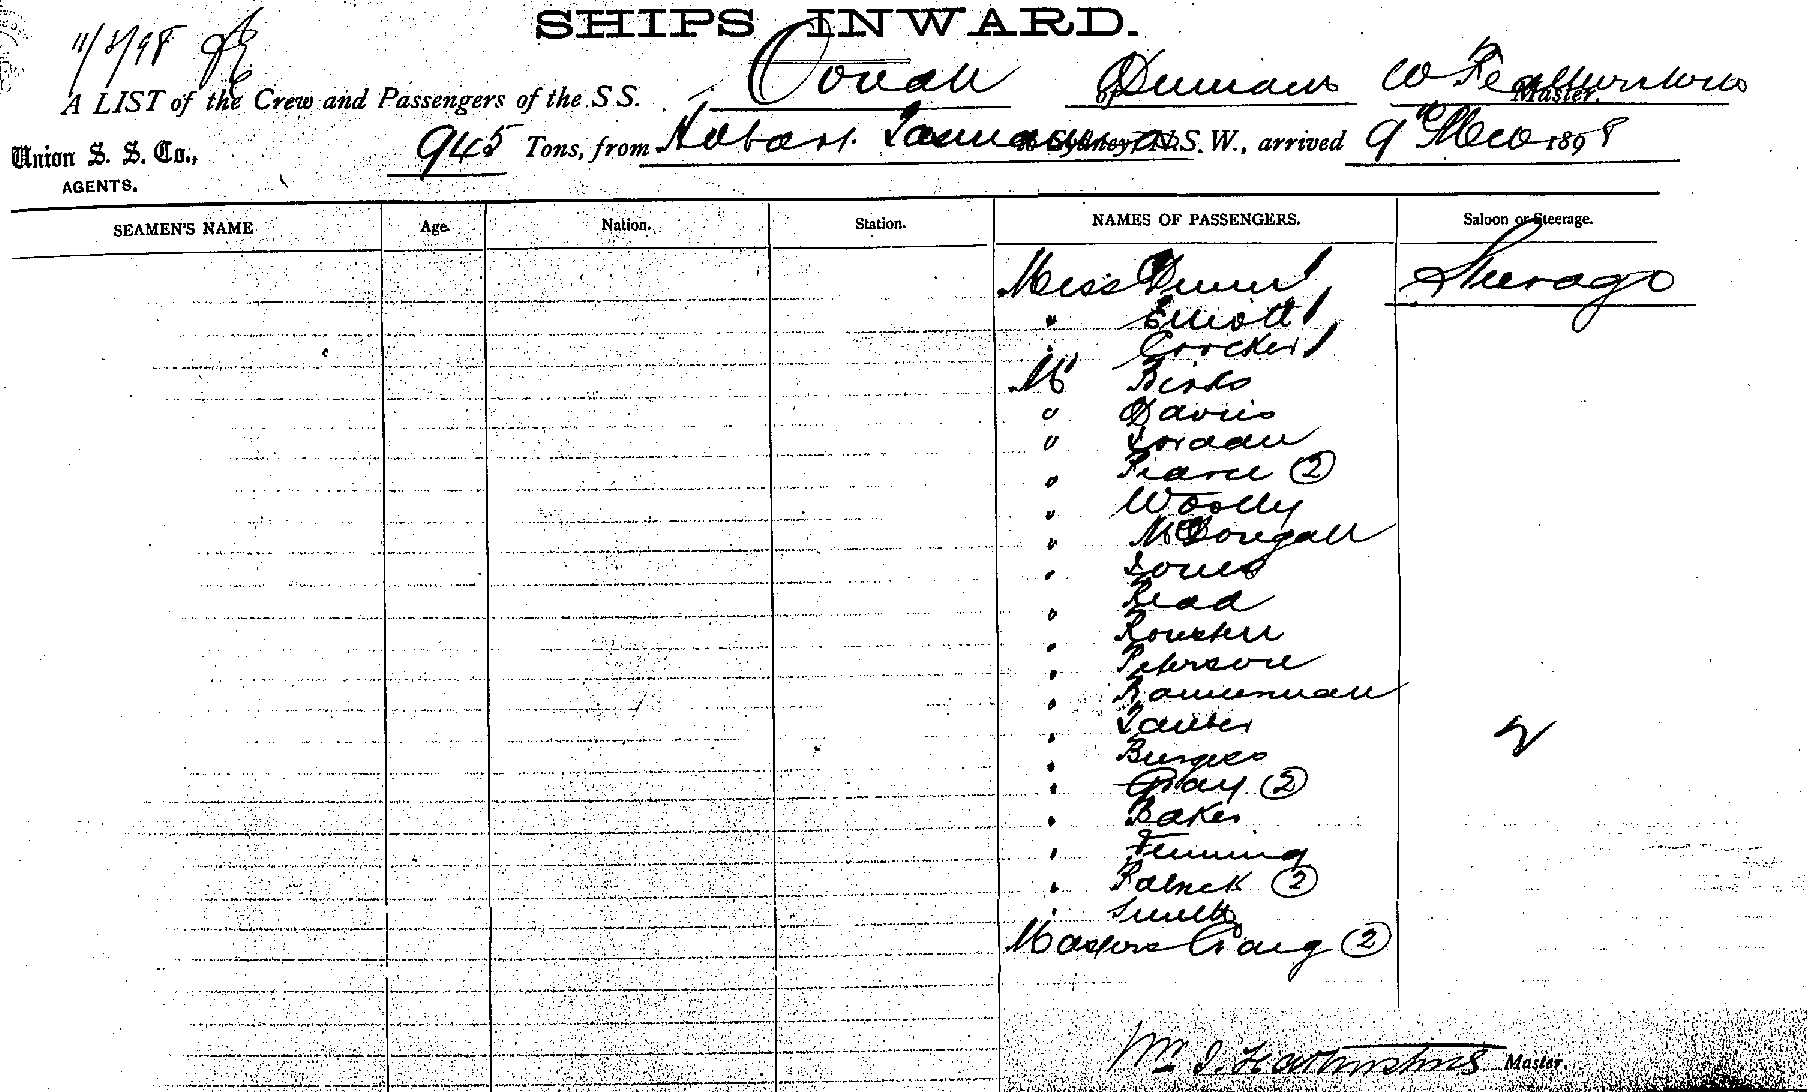 SHIPS INWARD.
11/3/98
A LIST of the Crew and Passengers of the S.S. Oonah of Dunedin W Featherstone Master.
Union S. S. Co., 945 Tons, from Hobart Tasmania to Sydney, N.S.W., arrived 9th 1898
AGENTS.
SEAMEN'S NAME Age. Nation. Station. NAMES OF PASSENGERS. Saloon or Steerage.
Miss Dunn Steerage
" Elliott
" Crocker
Mr Birks
" Davis
" Jordan
" Pearce (2)
" Woolly
" McDougall
" Jones
" Read
"
" Peterson
"
"
" Burgess
" Gray (2)
" Baker
" Fleming
" Patrick (2)
" Smith
Masters Craig (2)
Wm J. Featherstone Master.